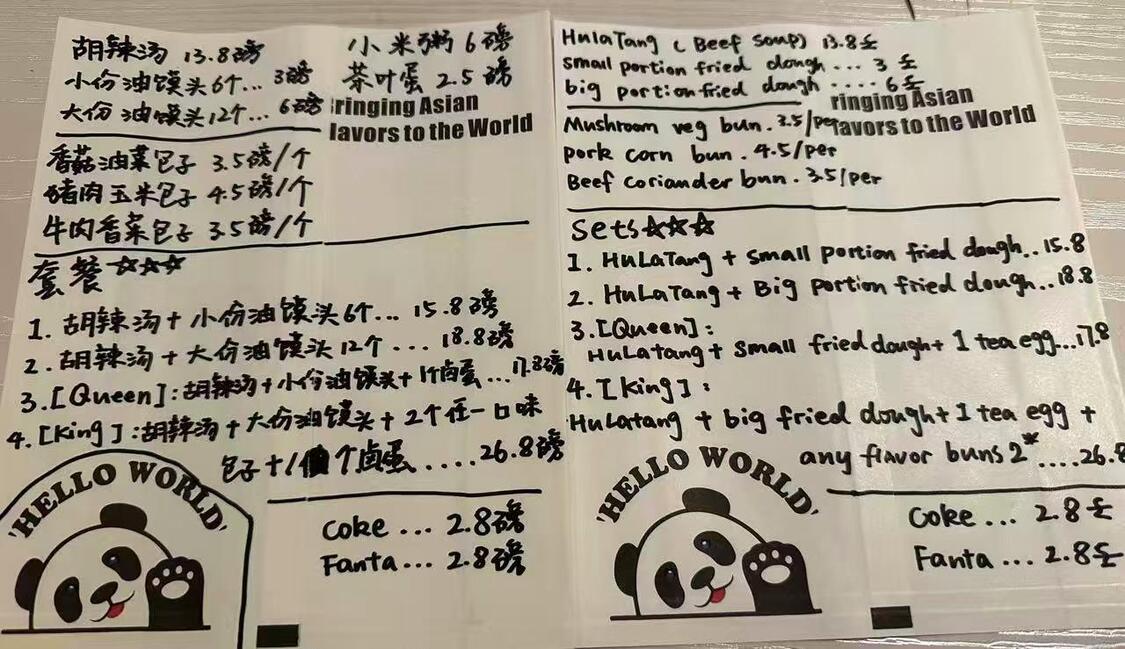 胡辣汤 13.8磅
小份油馍头6个... 3磅
大份油馍头12个... 6磅
小米粥 6磅
茶叶蛋 2.5磅
ringing Asian
lavors to the World
香菇油菜包子 3.5磅/个
猪肉玉米包子 4.5磅/个
牛肉香菜包子 3.5磅/个
套餐☆☆☆
1. 胡辣汤+小份油馍头6个... 15.8磅
2. 胡辣汤+大份油馍头12个... 18.8磅
3.[Queen]:胡辣汤+小份油馍头+1个卤蛋...17.8磅
4.[King]:胡辣汤+大份油馍头+2个任一口味
包子+1个卤蛋....26.8磅
'HELLO WORLD'
coke ... 2.8磅
Fanta... 2.8磅
HulaTang (Beef soup) 13.8£
small portion fried dough ... 3£
big portion fried dough .... 6£
ringing Asian
lavors to the World
Mushroom veg bun. 3.5/per
pork corn bun. 4.5/per
Beef coriander bun. 3.5/per
Sets☆☆☆
1. HuLaTang + small portion fried dough...15.8
2. HuLaTang + Big portion fried dough...18.8
3.[Queen]:
HuLatang + small fried dough + 1 tea egg...17.8
4.[King]:
HuLatang + big fried dough + 1 tea egg +
any flavor buns 2*....26.8
'HELLO WORLD'
Coke ... 2.8£
Fanta ... 2.8£